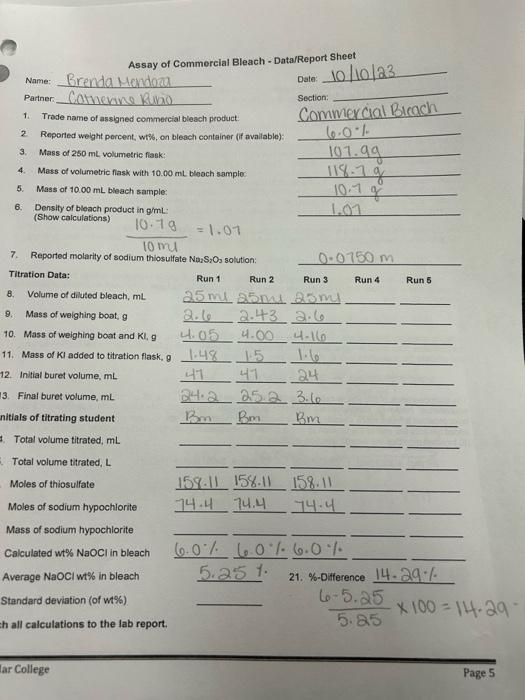 Assay of Commercial Bleach - Data/Report Sheet
Name: Brenda Mendoza Date: 10/10/23
Partner: Catherine Rubio Section:
1. Trade name of assigned commercial bleach product: Commercial Bleach
2. Reported weight percent, wt%, on bleach container (if available): 6.0%
3. Mass of 250 mL volumetric flask: 107.9g
4. Mass of volumetric flask with 10.00 mL bleach sample: 118.7g
5. Mass of 10.00 mL bleach sample: 10.7g
6. Density of bleach product in g/mL: 1.07
(Show calculations)
10.7g = 1.07
10 ml
7. Reported molarity of sodium thiosulfate Na₂S₂O₃ solution: 0.0750 m
Titration Data: Run 1 Run 2 Run 3 Run 4 Run 5
8. Volume of diluted bleach, mL 25ml 25ml 25ml
9. Mass of weighing boat, g 2.6 2.43 2.6
10. Mass of weighing boat and KI, g 4.05 4.00 4.16
11. Mass of KI added to titration flask, g 1.48 1.5 1.6
12. Initial buret volume, mL 47 47 24
3. Final buret volume, mL 24.2 25.2 3.6
nitials of titrating student Bm Bm Bm
. Total volume titrated, mL
. Total volume titrated, L
Moles of thiosulfate 158.11 158.11 158.11
Moles of sodium hypochlorite 74.4 74.4 74.4
Mass of sodium hypochlorite
Calculated wt% NaOCl in bleach 6.0% 6.0% 6.0%
Average NaOCl wt% in bleach 5.25% 21. %-Difference 14.29%
Standard deviation (of wt%)
6-5.25 x 100 = 14.29
5.25
ch all calculations to the lab report.
lar College Page 5